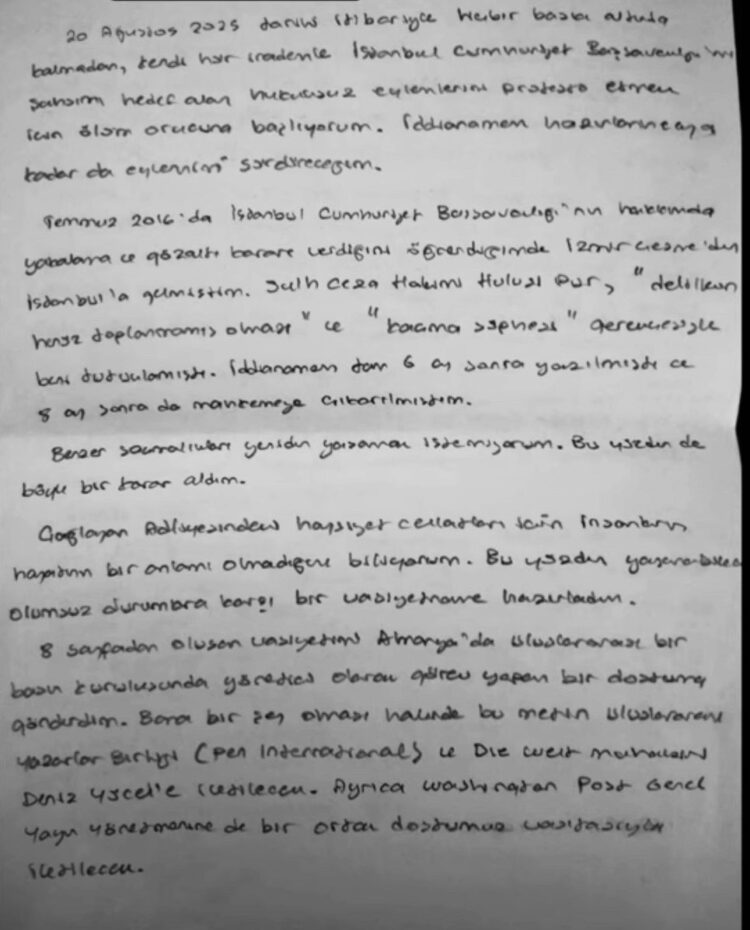 20 Ağustos 2025 tarihi itibariyle hiçbir baskı altında
kalmadan, kendi hür irademle İstanbul Cumhuriyet Başsavcılığı'nın
şahsımı hedef alan hukuksuz eylemlerini protesto etmek
için ölüm orucuna başlıyorum. İddianamem hazırlanıncaya
kadar da eylemimi sürdüreceğim.
Temmuz 2016'da İstanbul Cumhuriyet Başsavcılığı'nın hakkımda
yakalama ve gözaltı kararı verdiğini öğrendiğimde İzmir Çeşme'den
İstanbul'a gelmiştim. Sulh Ceza Hakimi Hulusi Pur, "delillerin
henüz toplanmamış olması" ve "kaçma şüphesi" gerekçesiyle
beni tutuklamıştı. İddianamem tam 6 ay sonra yazılmıştı ve
8 ay sonra da mahkemeye çıkarılmıştım.
Benzer sorumsuzlukları yeniden yaşamak istemiyorum. Bu yüzden de
böyle bir karar aldım.
Çağlayan Adliyesindeki haysiyet cellatları için insanların
hayatının bir anlamı olmadığını biliyorum. Bu yüzden yaşanabilecek
olumsuz durumlara karşı bir vasiyetname hazırladım.
8 sayfadan oluşan vasiyetimi Almanya'da uluslararası bir
basın kuruluşunda yönetici olarak görev yapan bir dostuma
gönderdim. Bana bir şey olması halinde bu metin Uluslararası
Yazarlar Birliği (Pen International) ve Die Welt muhabiri
Deniz Yücel'e iletilecek. Ayrıca Washington Post Genel
Yayın Yönetmenine de bir ortak dostumuz vasıtasıyla
iletilecek.